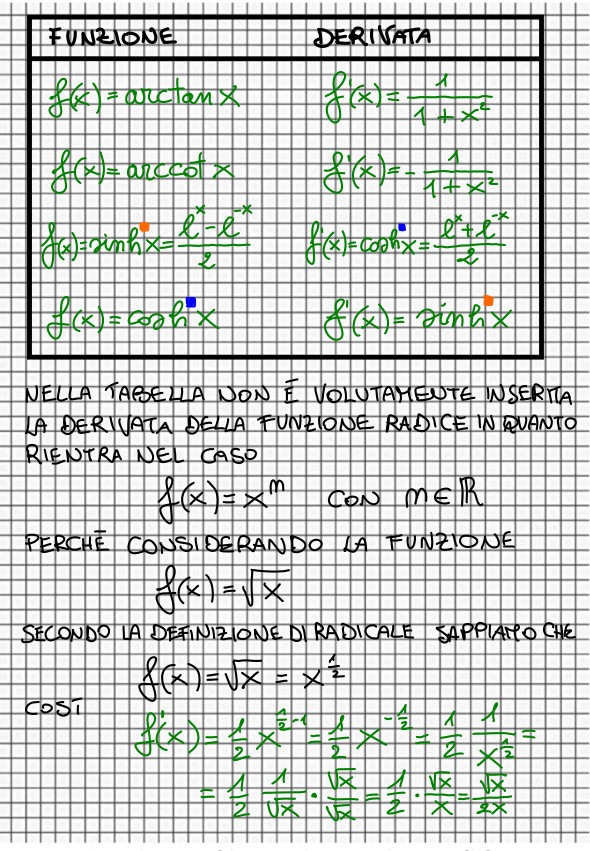 FUNZIONE DERIVATA
f(x) = arctan x f'(x) = 1/(1 + x²)
f(x) = arccot x f'(x) = - 1/(1 + x²)
f(x) = sinh x = (e^x - e^-x)/2 f'(x) = cosh x = (e^x + e^-x)/2
f(x) = cosh x f'(x) = sinh x
NELLA TABELLA NON È VOLUTAMENTE INSERITA
LA DERIVATA DELLA FUNZIONE RADICE IN QUANTO
RIENTRA NEL CASO
f(x) = x^m CON m ∈ ℝ
PERCHÈ CONSIDERANDO LA FUNZIONE
f(x) = √x
SECONDO LA DEFINIZIONE DI RADICALE SAPPIAMO CHE
f(x) = √x = x^(1/2)
COSÌ f'(x) = 1/2 x^(1/2 - 1) = 1/2 x^(-1/2) = 1/2 1/x^(1/2) =
= 1/2 1/√x · √x/√x = 1/2 · √x/x = √x/2x